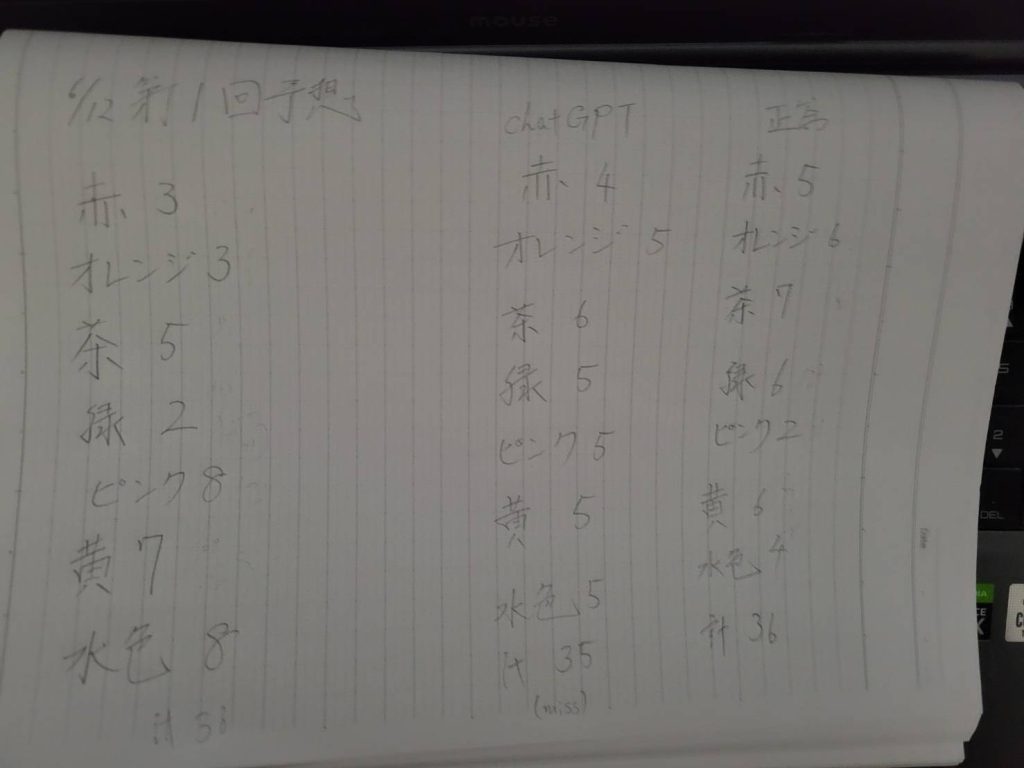 mouse
6/12 第1回予想
赤 3
オレンジ 3
茶 5
緑 2
ピンク 8
黄 7
水色 8
計
chatGPT
赤 4
オレンジ 5
茶 6
緑 5
ピンク 5
黄 5
水色 5
計 35
(miss)
正答
赤 5
オレンジ 6
茶 7
緑 6
ピンク 2
黄 6
水色 4
計 36
2
DEL